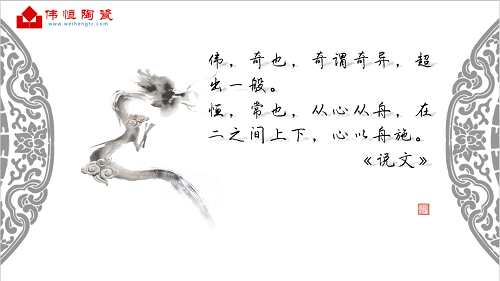 伟恒陶瓷
www.weihengtc.com
伟，奇也，奇谓奇异，超
出一般。
恒，常也，从心从舟，在
二之间上下，心以舟施。
《说文》